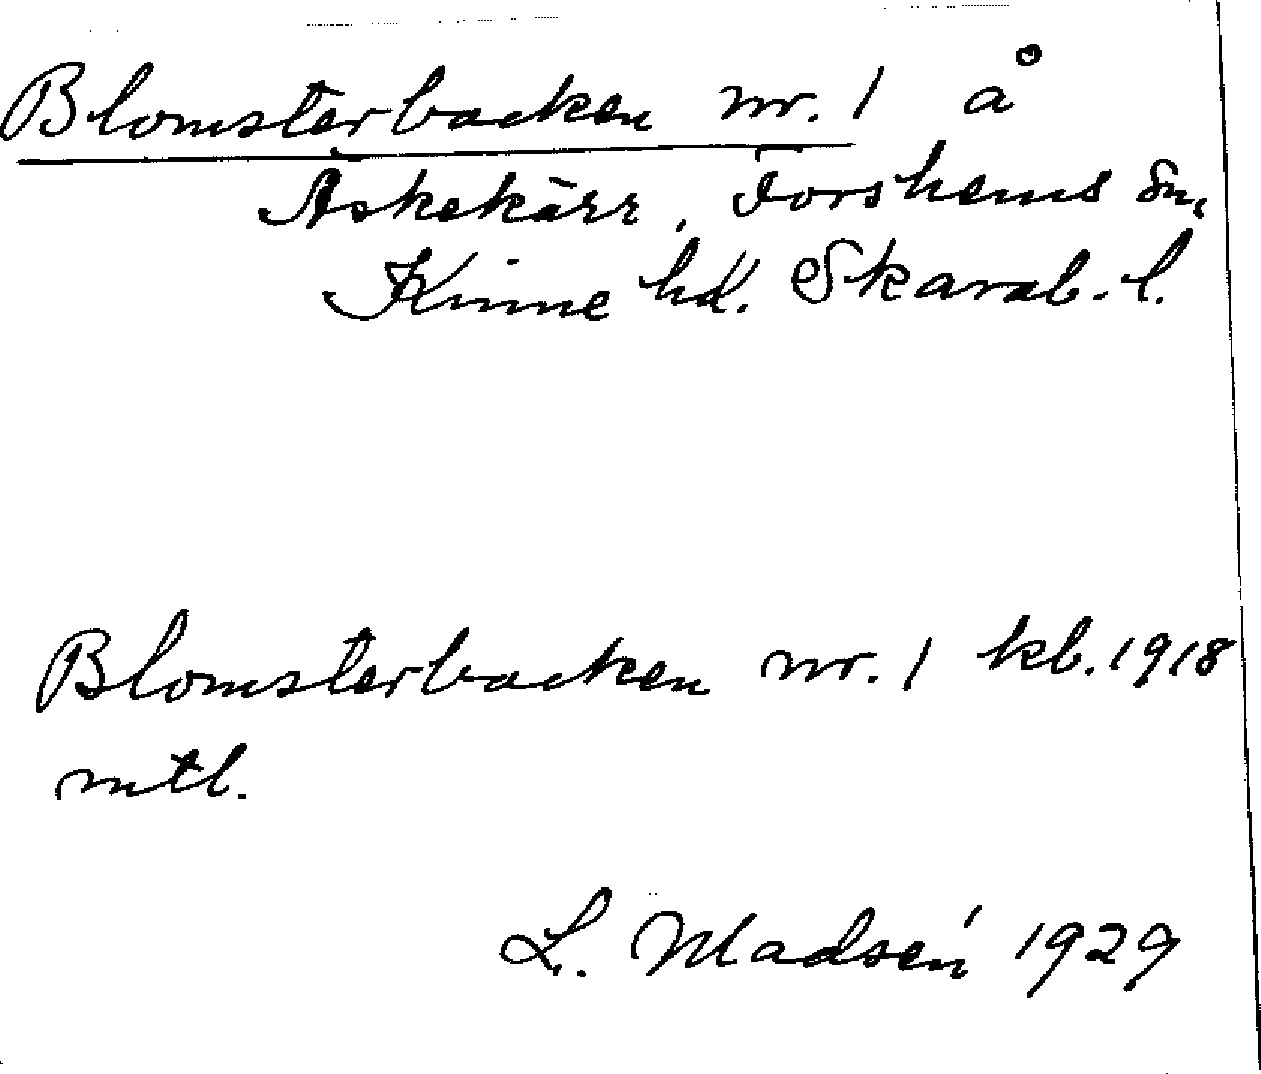 Blomsterbacken nr. 1 å
Äskekärr, Forshems sn,
Kinne hd. Skarab. l.
Blomsterbacken nr. 1 kb. 1918
mtl.
L. Madsén 1929